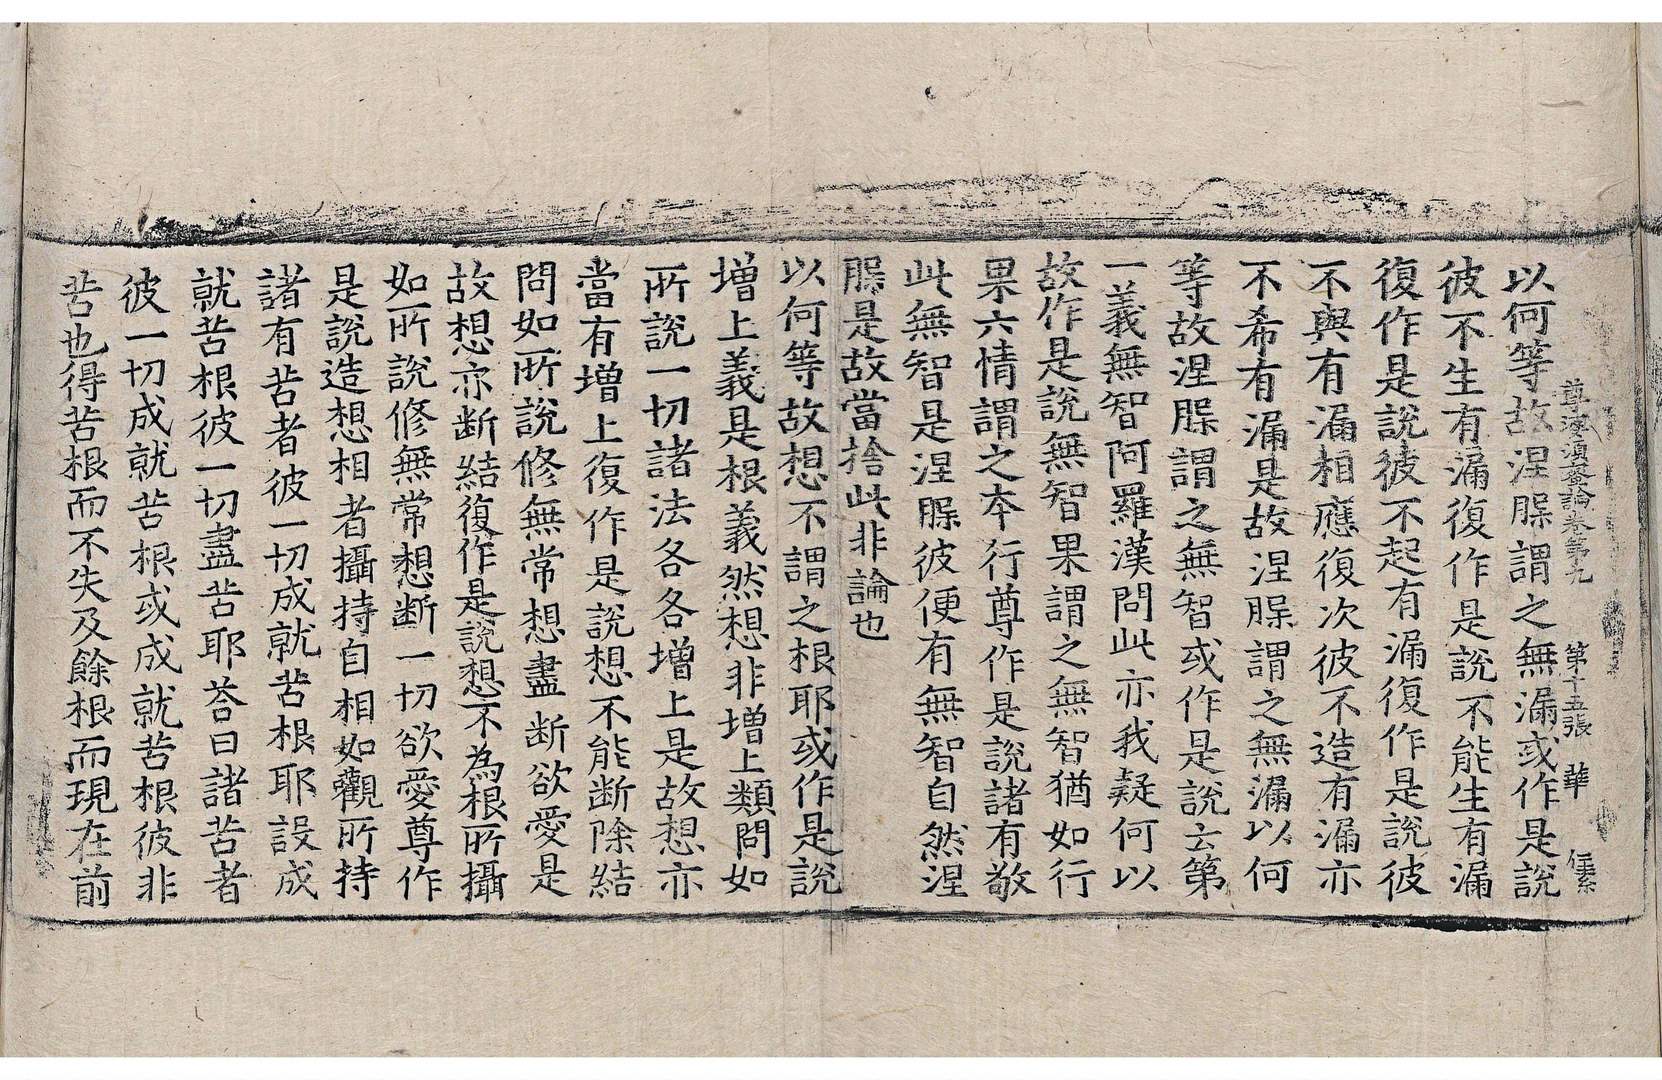 尊婆須蜜論卷第九 第十五張 華
以何等故涅槃謂之無漏或作是說
彼不生有漏復作是說不能生有漏
復作是說彼不起有漏復作是說彼
不與有漏相應復次彼不造有漏亦
不希有漏是故涅槃謂之無漏以何
等故涅槃謂之無智或作是說云第
一義無智阿羅漢問此亦我疑何以
故作是說無智果謂之無智猶如行
果六情謂之本行尊作是說諸有敬
此無智是涅槃彼便有無智自然涅
槃是故當捨此非論也
以何等故想不謂之根耶或作是說
增上義是根義然想非增上類問如
所說一切諸法各各增上是故想亦
當有增上復作是說想不能斷除結
問如所說修無常想盡斷欲愛是
故想亦斷結復作是說想不為根所攝
如所說修無常想斷一切欲愛尊作
是說造想相者攝持自相如觀所持
諸有苦者彼一切成就苦根耶設成
就苦根彼一切盡苦耶荅曰諸苦者
彼一切成就苦根或成就苦根彼非
苦也得苦根而不失及餘根而現在前